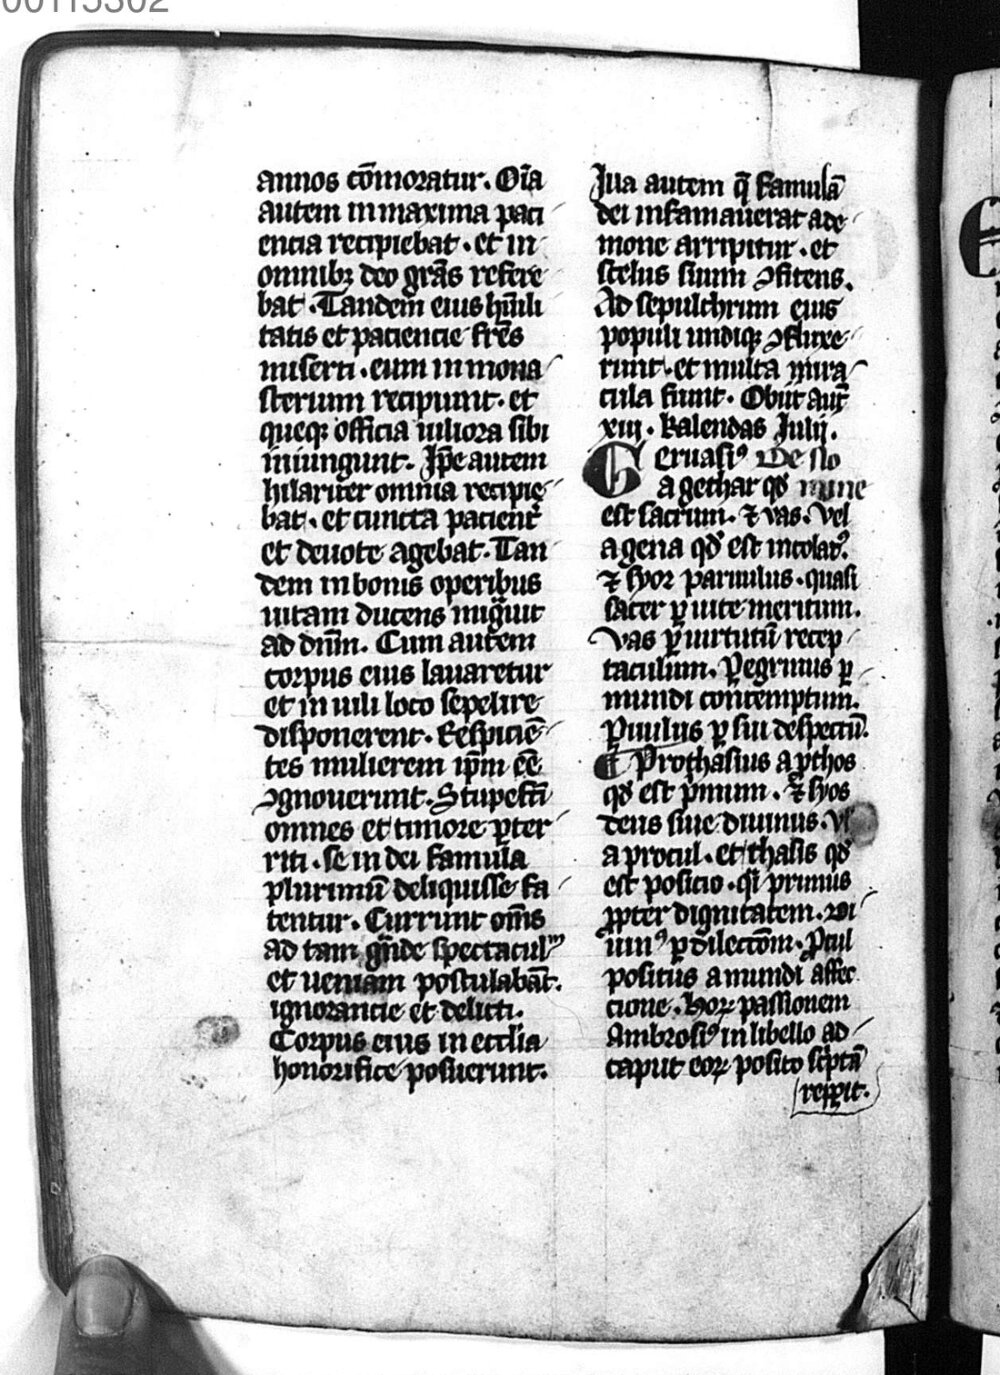 00115302
annos cōmoratur. Oīa
autem in maxima paci
encia recipiebat. et in
omnibꝫ deo grās refere
bat. Tandem eius hūili
tatis et paciencie frēs
miserti. eum in mona
sterium recipiunt. et
queqꝫ officia uiliora sibi
iniungunt. Ip̄e autem
hilariter omnia recipie
bat. et cuncta pacient̄
et deuote agebat. Tan
dem in bonis operibus
uitam ducens migͣuit
ad dn̄m. Cum autem
corpus eius lauaretur
et in uili loco sepelire
disponerent. Respiciē
tes mulierem ip̄m eē
ꝯgnouerunt. Stupefc̄i
omnes et timore p̄ter
riti. se in dei famula
plurimū deliquisse fa
tentur. Currunt om̄s
ad tam gͣnde spectacul
et ueniam postulabāt.
ignorancie et delicti.
Corpus eius in eccl̄ia
honorifice posuerunt.
Illa autem q̄ famulā
dei infamauerat a de
mone arripitur. et
scelus suum ꝯfitens.
Ad sepulchrum eius
populi undiqꝫ ꝯfluxe
runt. et multa mira
cula fiunt. Obiit aut̄
xiii. Kalendas Julij.
Geruasiꝰ de s̄co
a gethar qd̄ 
est sacrum. ⁊ vas. vel
a gena qd̄ est incolatꝰ.
⁊ syor paruulus. quasi
sacer ꝑ uite meritum.
Vas ꝑ uirtutū recep
taculum. Ꝑegrinus ꝑ
mundi contemptum.
Ꝑuulus ꝑ sui despectū.
¶ Prothasius a ꝓthos
qd̄ est p̄mum. ⁊ syos
deus siue diuinus. vl̄
a procul. et thasis qd̄
est positio. qͣi primus
ꝓpter dignitatem. Di
uinꝰ ꝑ dilectōm. Ꝓcul
positus a mundi affec
cione. Hoꝝ passionem
Ambrosiꝰ in libello ad
caput eoꝝ posito sc̄ptā
repp̄it.